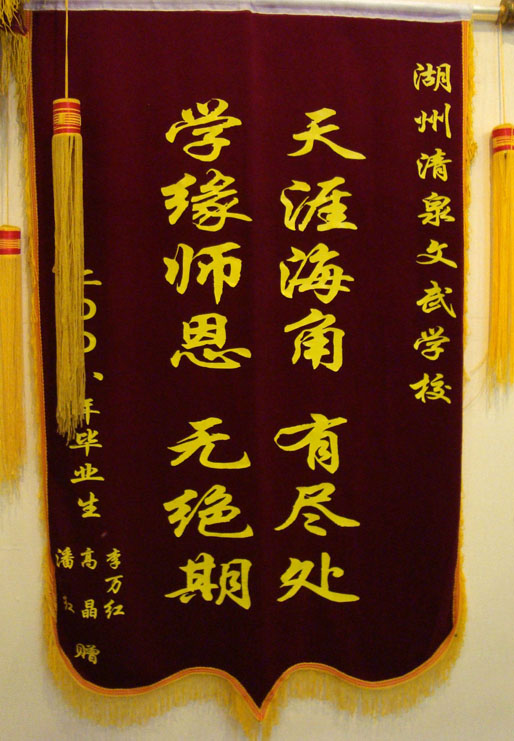 湖州清泉文武学校
天涯海角 有尽处
学缘师恩 无绝期
二〇〇 年毕业生
李万红
高晶
潘红
赠